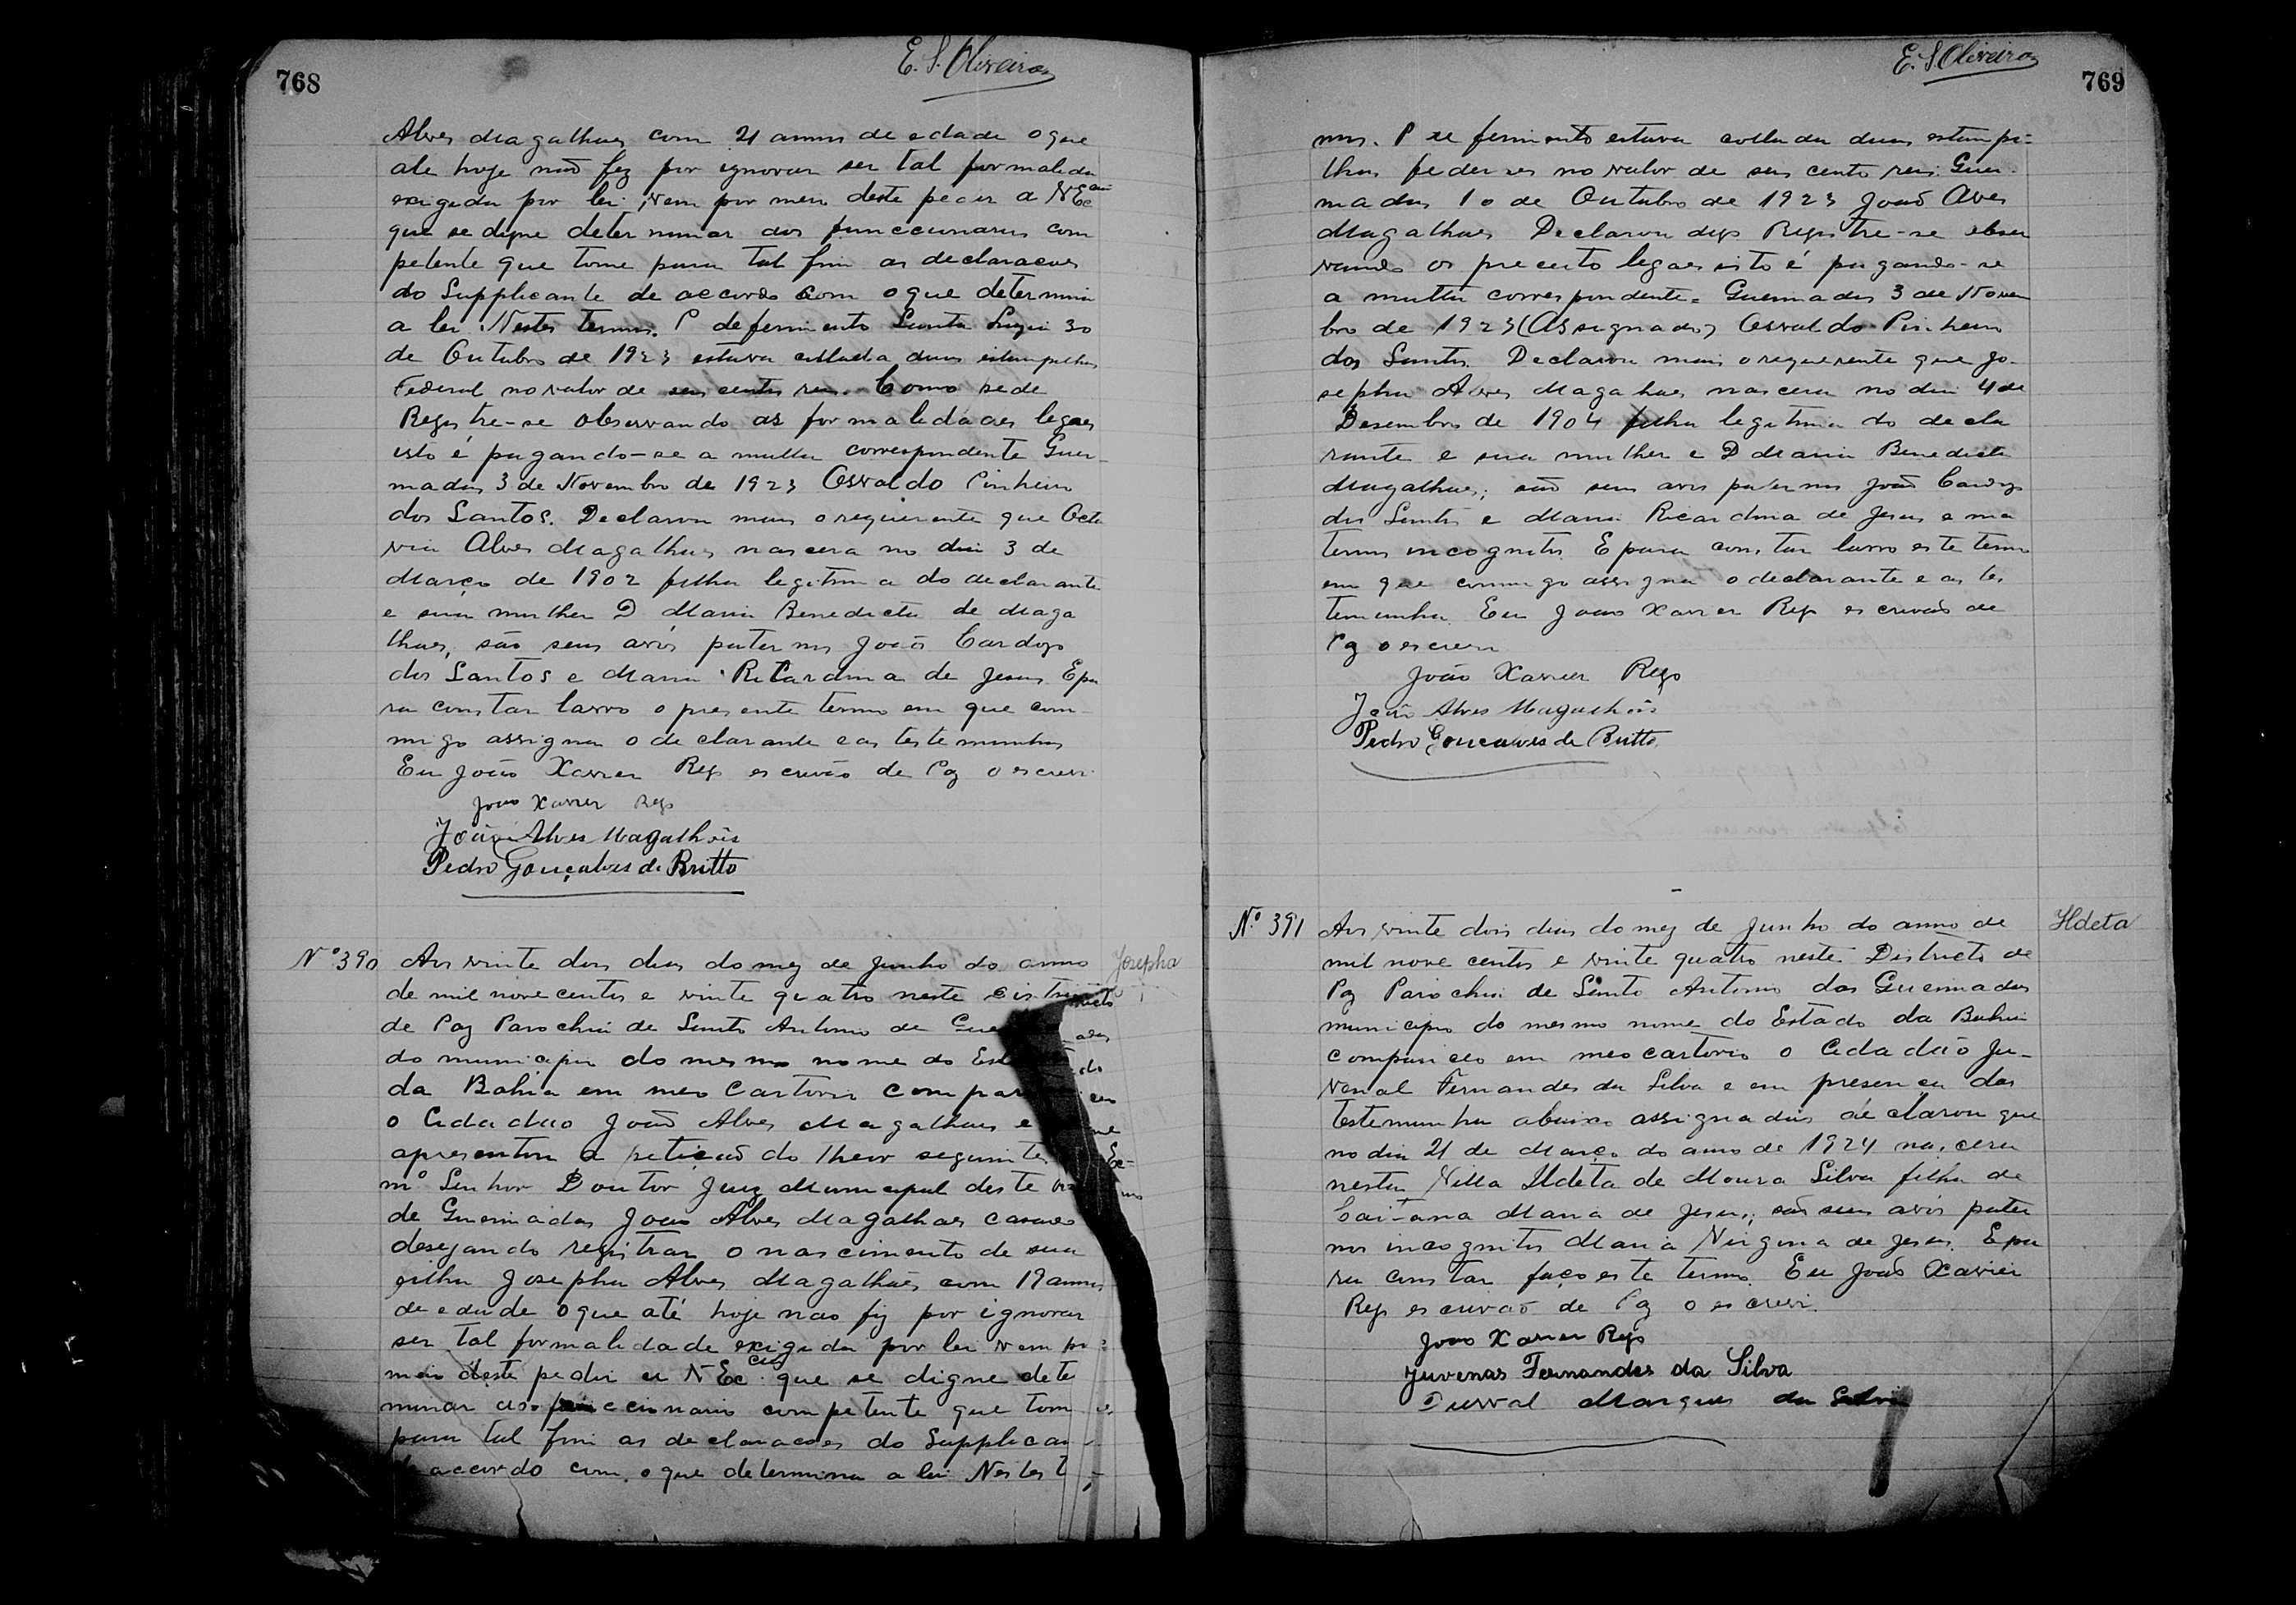 768
E. S. Oliveira
Alves Magalhaes com 21 annos de edade o que
ate hoje não fez por ignorar ser tal formalida
exigida por lei, vem por meio deste pedir a V Ec cia
que se digne determinar aos funccionarios com
petente que tome para tal fim as declaracoes
do Supplicante de accordo com o que determina
a lei. Nestes termos. P deferimento Santa Luzia 30
de Outubro de 1923 estava collada duas estampilhas
Federal no valor de seis centos reis. Como pede
Registre-se observando as formalidades legaes
isto é pagando-se a multa correspondente Quei-
madas 3 de Novembro de 1923 Osvaldo Pinheiro
dos Santos. Declarou mais o requerente que Octa
via Alves Magalhaes nascera no dia 3 de
Março de 1902 filha legitima do declarante
e sua mulher D Maria Benedicta de Maga
lhaes, são seus avós paternos João Cardozo
dos Santos e Maria Ricardina de Jesus E pa
ra constar lavro o presente termo em que com
migo assigna o declarante e as testemunhas
Eu João Xavier Rego escrivão de Paz o escrevi
João Xavier Rego
João Alves Magalhães
Pedro Gonçalves de Britto
Nº 390 Aos vinte dois dias do mez de Junho do anno
Josepha
de mil nove centos e vinte quatro neste Districto
de Paz Parochia de Santo Antonio de Queimadas
do municipio do mesmo nome do Estado
da Bahia em meo Cartorio compareceu
o Cidadão João Alves Magalhaes e me
apresentou a petição do theor seguinte Ex-
mº Senhor Doutor Juiz Municipal deste termo
de Queimadas João Alves Magalhaes casado
desejando registrar o nascimento de sua
filha Josepha Alves Magalhães com 19 annos
de edade o que até hoje nao fiz por ignorar
ser tal formalidade exigida por lei vem por
meio deste pedir a V Ec cia que se digne dete
minar ao funccionario competente que tome
para tal fim as declaracoes do Supplican
accordo com o que determina a lei Nestes t
E. S. Oliveira
769
mos. P deferimento estava collada duas estampi-
lhas federaes no valor de seis cento reis. Quei
madas 10 de Outubro de 1923 João Alves
Magalhaes Declarou digo Registre-se obser
vando os preceito legaes isto é pagando-se
a multa correspondente. Queimadas 3 de Novem
bro de 1923 (Assignado) Osvaldo Pinheiro
dos Santos. Declarou mais o requerente que Jo-
sepha Alves Magalhaes nascera no dia 4 de
Desembro de 1904 filha legitima do decla
rante e sua mulher e D Maria Benedicta
Magalhaes; são seus avos paternos João Cardozo
dos Santos e Maria Ricardina de Jesus e ma
ternos incognitos. E para constar lavro este termo
em que commigo assigna o declarante e as tes
temunha. Eu João Xavier Rego escrivão de
Paz o escrevi
João Xavier Rego
João Alves Magalhães
Pedro Gonçalves de Britto
Nº 391 Aos vinte dois dias do mez de Junho do anno de
Ildeta
mil nove centos e vinte quatro neste Districto de
Paz Parochia de Santo Antonio das Queimadas
municipio do mesmo nome do Estado da Bahia
compareceo em meo cartorio o Cidadão Ju-
venal Fernandes da Silva e em presença das
testemunha abaixo assignadas declarou que
no dia 21 de Março do anno de 1924 nascera
nesta Villa Ildeta de Moura Silva filha de
Caitana Maria de Jesus; são seus avós pater
nos incognitos Maria Virginia de Jesus. E pa
ra constar faço este termo. Eu João Xavier
Rego escrivão de Paz o escrevi.
João Xavier Rego
Juvenas Fernandes da Silva
Durval Marques da Silva